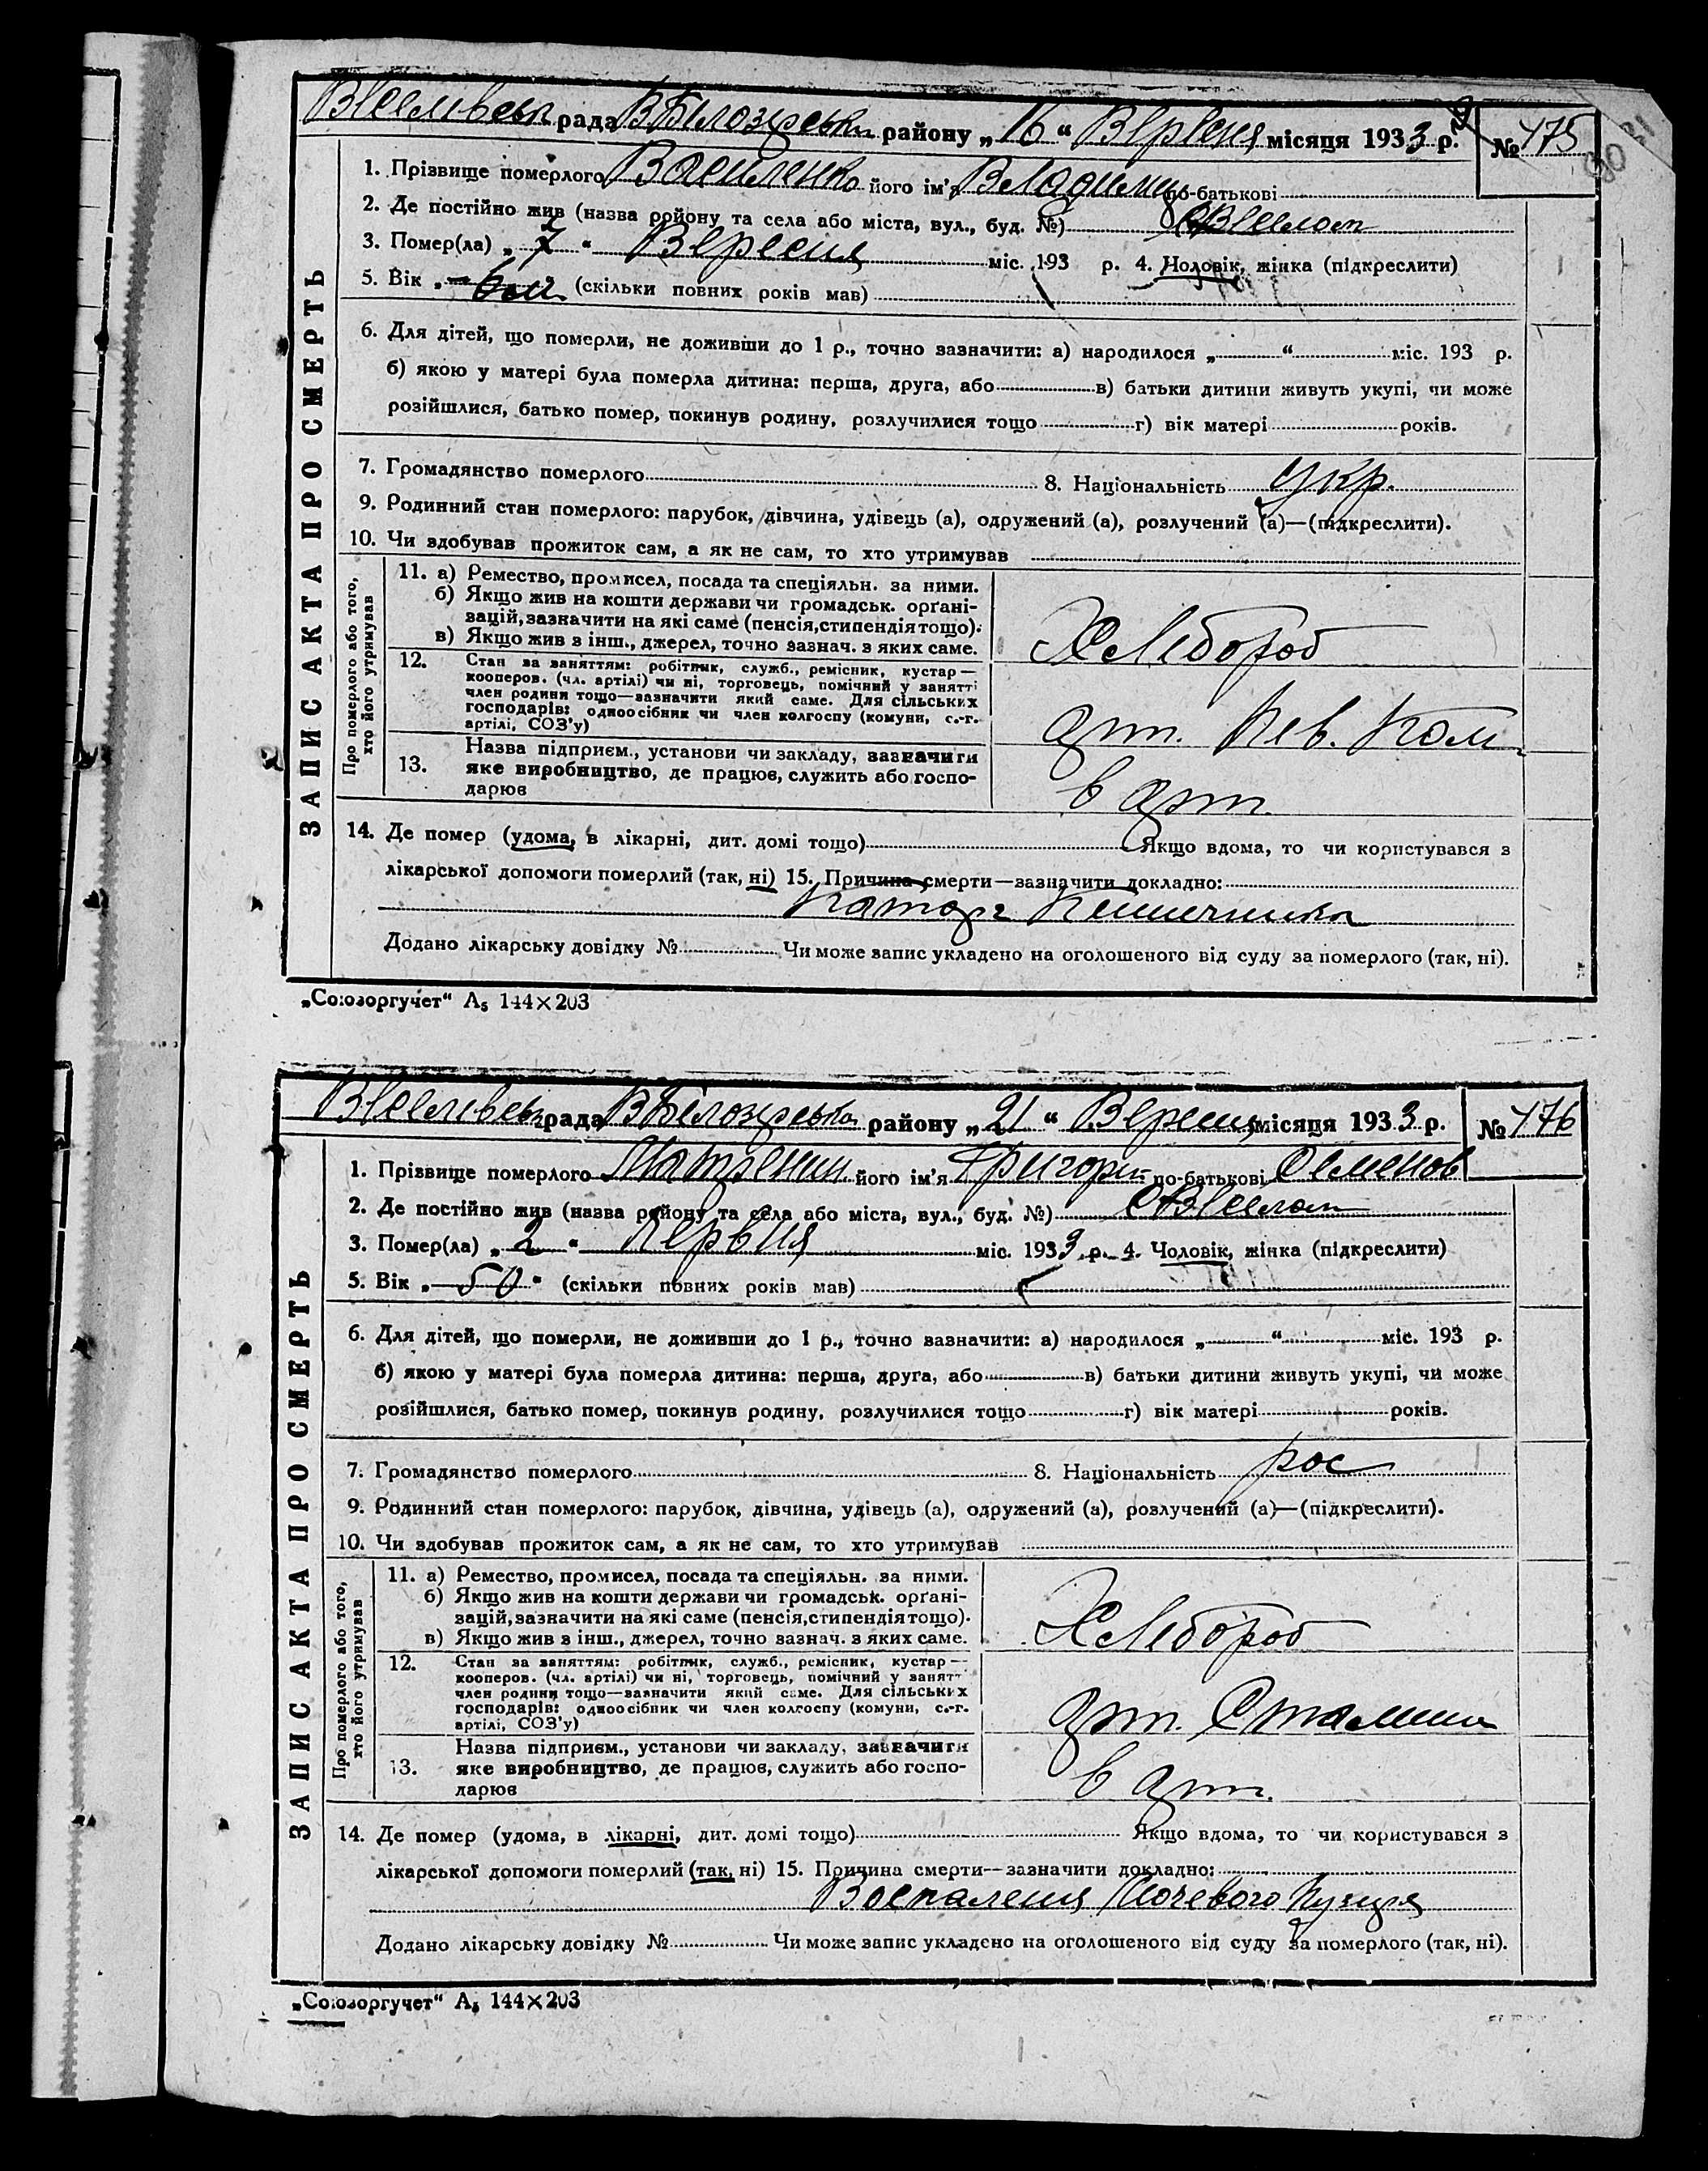 рада ВБілозірська району „16“ Вересня місяця 1933 р. № 475
1. Прізвище померлого Василенко його ім'я Владимир по-батькові
2. Де постійно жив (назва району та села або міста, вул., буд. №)
3. Помер(ла) „7“ Вересня міс. 193 р. 4. Чоловік, жінка (підкреслити)
5. Вік „ 6 м “ (скільки повних років мав)
6. Для дітей, що померли, не доживши до 1 р., точно зазначити: а) народилося „ “ міс. 193 р.
б) якою у матері була померла дитина: перша, друга, або в) батьки дитини живуть укупі, чи може
розійшлися, батько помер, покинув родину, розлучилися тощо г) вік матері років.
7. Громадянство померлого 8. Національність укр.
9. Родинний стан померлого: парубок, дівчина, удівець (а), одружений (а), розлучений (а)—(підкреслити).
10. Чи здобував прожиток сам, а як не сам, то хто утримував
ЗАПИС АКТА ПРО СМЕРТЬ
Про померлого або того,
хто його утримував
11. а) Ремество, промисел, посада та спеціяльн. за ними.
б) Якщо жив на кошти держави чи громадськ. орґані-
зацій, зазначити на які саме (пенсія, стипендія тощо).
в) Якщо жив з інш., джерел, точно зазнач. з яких саме.
Хлебороб
12. Стан за заняттям: робітник, служб., ремісник, кустар—
кооперов. (чл. артілі) чи ні, торговець, помічний у занятті
член родини тощо—зазначити який саме. Для сільських
господарів: одноосібник чи член колгоспу (комуни, с.-г.
артілі, СОЗ'у)
арт. Рев. Ком.
13. Назва підприєм., установи чи закладу, зазначити
яке виробництво, де працює, служить або госпо-
дарює
в арт.
14. Де помер (удома, в лікарні, дит. домі тощо) Якщо вдома, то чи користувався з
лікарської допомоги померлий (так, ні) 15. Причина смерти—зазначити докладно:
Катар Кишечника
Додано лікарську довідку № Чи може запис укладено на оголошеного від суду за померлого (так, ні).
„Союзоргучет“ А5 144×203
рада ВБілозірська району „21“ Вересня місяця 1933 р. № 476
1. Прізвище померлого його ім'я Григорій по-батькові Семенов
2. Де постійно жив (назва району та села або міста, вул., буд. №)
3. Помер(ла) „2“ Червня міс. 1933 р. 4. Чоловік, жінка (підкреслити)
5. Вік „50“ (скільки повних років мав)
6. Для дітей, що померли, не доживши до 1 р., точно зазначити: а) народилося „ “ міс. 193 р.
б) якою у матері була померла дитина: перша, друга, або в) батьки дитини живуть укупі, чи може
розійшлися, батько помер, покинув родину, розлучилися тощо г) вік матері років.
7. Громадянство померлого 8. Національність рос
9. Родинний стан померлого: парубок, дівчина, удівець (а), одружений (а), розлучений (а)—(підкреслити).
10. Чи здобував прожиток сам, а як не сам, то хто утримував
ЗАПИС АКТА ПРО СМЕРТЬ
Про померлого або того,
хто його утримував
11. а) Ремество, промисел, посада та спеціяльн. за ними.
б) Якщо жив на кошти держави чи громадськ. орґані-
зацій, зазначити на які саме (пенсія, стипендія тощо).
в) Якщо жив з інш., джерел, точно зазнач. з яких саме.
Хлебороб
12. Стан за заняттям: робітник, служб., ремісник, кустар—
кооперов. (чл. артілі) чи ні, торговець, помічний у занятт
член родини тощо—зазначити який саме. Для сільських
господарів: одноосібник чи член колгоспу (комуни, с.-г.
артілі, СОЗ'у)
арт. Сталина
13. Назва підприєм., установи чи закладу, зазначити
яке виробництво, де працює, служить або госпо-
дарює
в арт.
14. Де помер (удома, в лікарні, дит. домі тощо) Якщо вдома, то чи користувався з
лікарської допомоги померлий (так, ні) 15. Причина смерти—зазначити докладно:
Воспаления Мочевого пузиря
Додано лікарську довідку № Чи може запис укладено на оголошеного від суду за померлого (так, ні).
„Союзоргучет“ А5 144×203